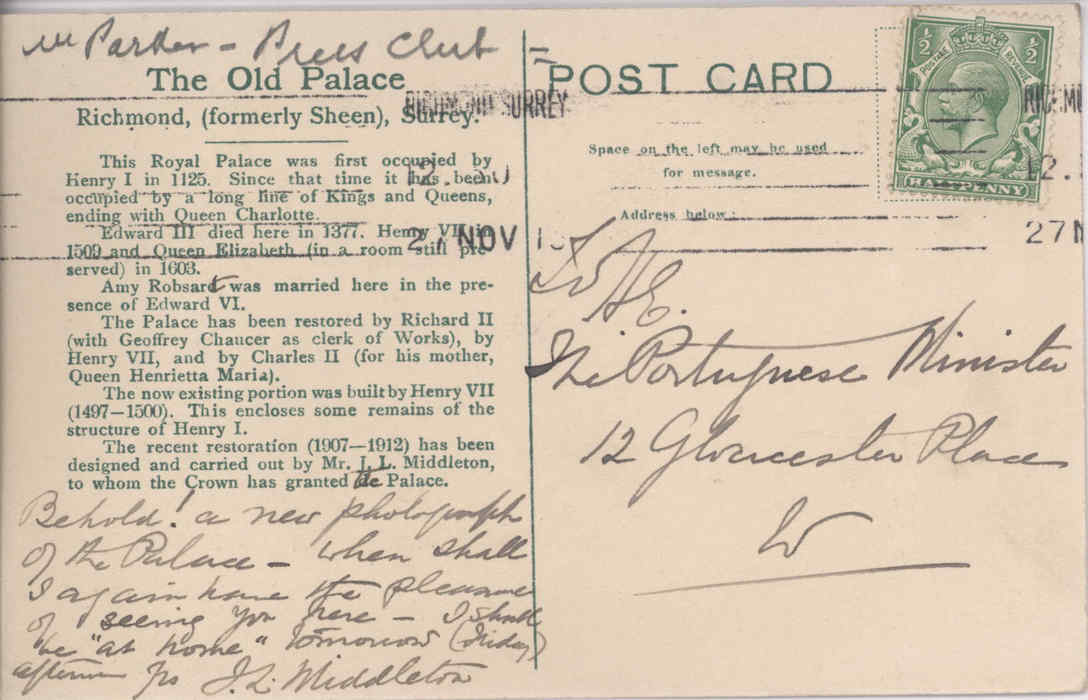 Mr Parker – Press Club
The Old Palace
Richmond, (formerly Sheen), Surrey.
This Royal Palace was first occupied by
Henry I in 1125. Since that time it has been
occupied by a long line of Kings and Queens,
ending with Queen Charlotte.
Edward III died here in 1377. Henry VII in
1509 and Queen Elizabeth (in a room still pre-
served) in 1603.
Amy Robsart was married here in the pre-
sence of Edward VI.
The Palace has been restored by Richard II
(with Geoffrey Chaucer as clerk of Works), by
Henry VII, and by Charles II (for his mother,
Queen Henrietta Maria).
The now existing portion was built by Henry VII
(1497—1500). This encloses some remains of the
structure of Henry I.
The recent restoration (1907—1912) has been
designed and carried out by Mr. J. L. Middleton,
to whom the Crown has granted the Palace.
Behold! a new photograph
of the Palace – when shall
I again have the pleasure
of seeing you here – I shall
be "at home" tomorrow (Friday)
afternoon
J. L. Middleton
POST CARD
Space on the left may be used
for message.
Address below:
RICHMOND SURREY
12.30
27 NOV
½ ½
POSTAGE REVENUE
HALFPENNY
RICHM
12.
27 N
To H.E.
The Portuguese Minister
12 Gloucester Place
W